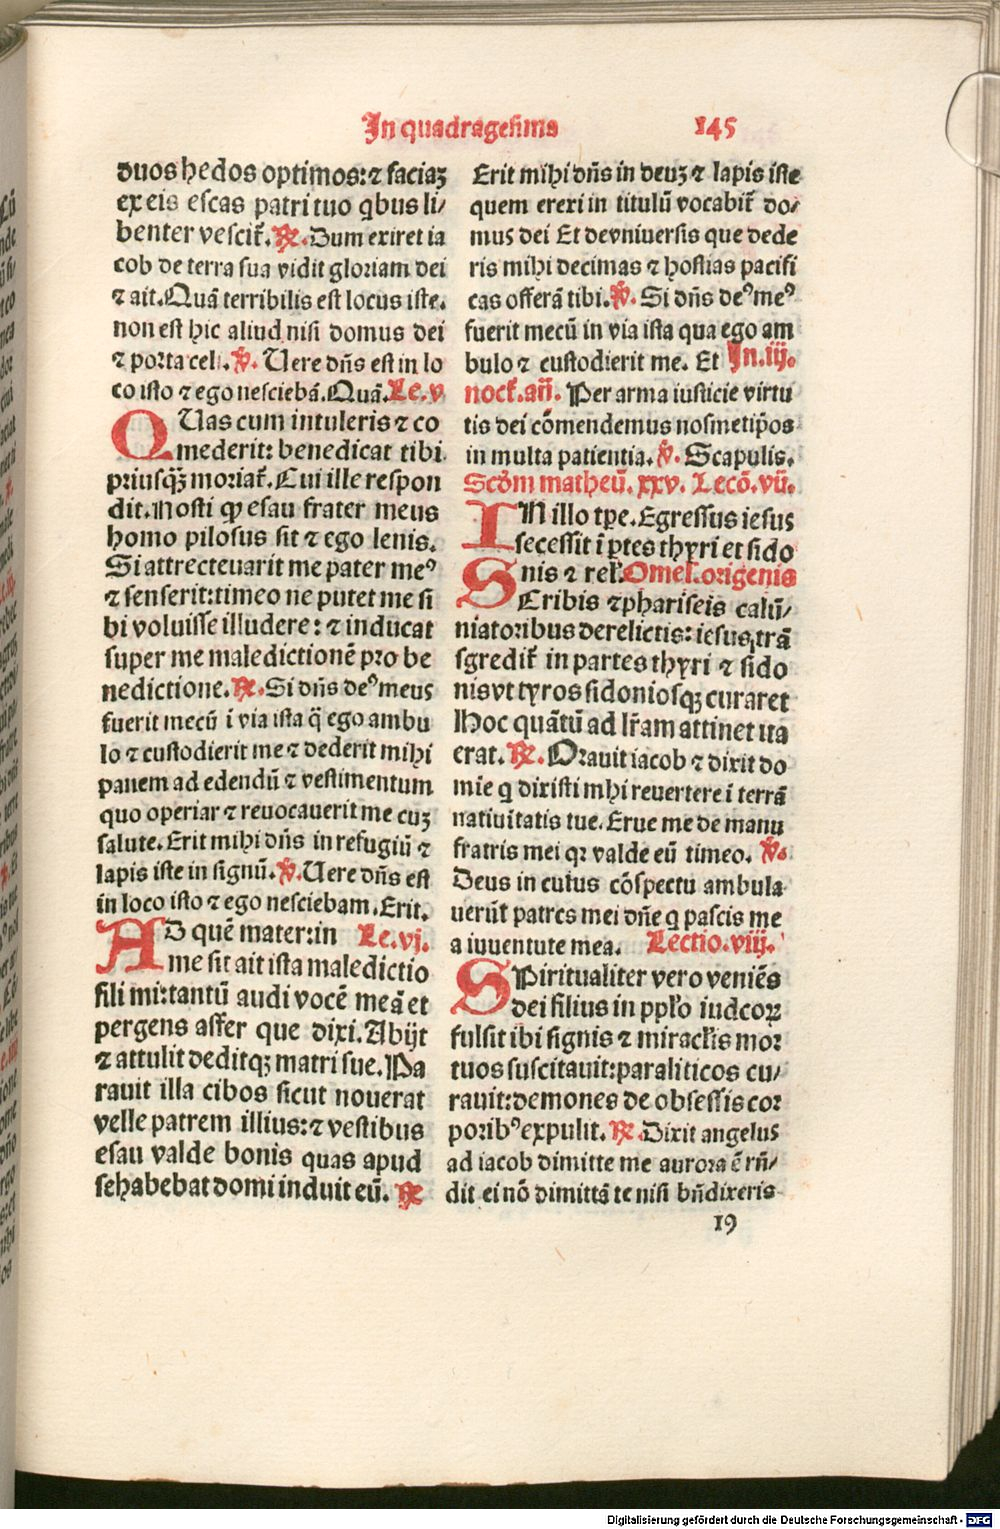 In quadragesima 145
duos hedos optimos: ⁊ faciaꝫ
ex eis escas patri tuo qbus li/
benter vescit̃. ℟. Dum exiret ia
cob de terra sua vidit gloriam dei
⁊ ait. Quã terribilis est locus iste.
non est hic aliud nisi domus dei
⁊ porta celi. ℣. Uere dñs est in lo
co isto ⁊ ego nesciebã. Quã. Le. v
QUas cum intuleris ⁊ co
mederit: benedicat tibi
priusqꝫ moriat̃. Cui ille respon
dit. Nosti ꝙ esau frater meus
homo pilosus sit ⁊ ego lenis.
Si attrectevarit me pater meꝰ
⁊ senserit: timeo ne putet me si
bi voluisse illudere: ⁊ inducat
super me maledictionẽ pro be
nedictione. ℟. Si dñs deꝰ meus
fuerit mecũ ĩ via ista q̃ ego ambu
lo ⁊ custodierit me ⁊ dederit mihi
panem ad edendũ ⁊ vestimentum
quo operiar ⁊ revocaverit me cuꝫ
salute. Erit mihi dñs in refugiũ ⁊
lapis iste in signũ. ℣. Uere dñs est
in loco isto ⁊ ego nesciebam. Erit.
AD quẽ mater: in Le. vj.
me sit ait ista maledictio
fili mi: tantũ audi vocẽ meã et
pergens affer que dixi. Abijt
⁊ attulit deditqꝫ matri sue. Pa
rauit illa cibos sicut nouerat
velle patrem illius: ⁊ vestibus
esau valde bonis quas apud
se habebat domi induit eũ. ℟
Erit mihi dñs in deuꝫ ⁊ lapis iste
quem erexi in titulũ vocabit̃ do/
mus dei Et de vniversis que dede
ris mihi decimas ⁊ hostias pacifi
cas offerã tibi. ℣. Si dñs deꝰ meꝰ
fuerit mecũ in via ista qua ego am
bulo ⁊ custodierit me. Et In. iij.
noct̃. añ. Per arma iusticie virtu
tis dei cõmendemus nosmetip̃os
in multa patientia. ℣. Scapulis.
Scd̃m matheũ. xxv. Lecõ. vij.
IN illo tp̃e. Egressus iesus
secessit ĩ ꝑtes thyri et sido
nis ⁊ rel̃. Omel̃. origenis
SCribis ⁊ phariseis calũ/
niatoribus derelictis: iesus trã
sgredit̃ in partes thyri ⁊ sido
nis vt tyros sidoniosqꝫ curaret
Hoc quãtũ ad lr̃am attinet ita
erat. ℟. Orauit iacob ⁊ dixit do
mĩe q dixisti mhi revertere ĩ terrã
nativitatis tue. Erue me de manu
fratris mei qꝛ valde eũ timeo. ℣.
Deus in cuius cõspectu ambula
uerũt patres mei dñe q pascis me
a iuuentute mea. Lectio. viij.
SPiritualiter vero veniẽs
dei filius in ppl̃o iudeoꝝ
fulsit ibi signis ⁊ miracl̃is mor
tuos suscitauit: paraliticos cu/
rauit: demones de obsessis cor
poribꝰ expulit. ℟. Dixit angelus
ad iacob dimitte me aurora ẽ rñ/
dit ei nõ dimittã te nisi bñdixeris
19
Digitalisierung gefördert durch die Deutsche Forschungsgemeinschaft - DFG